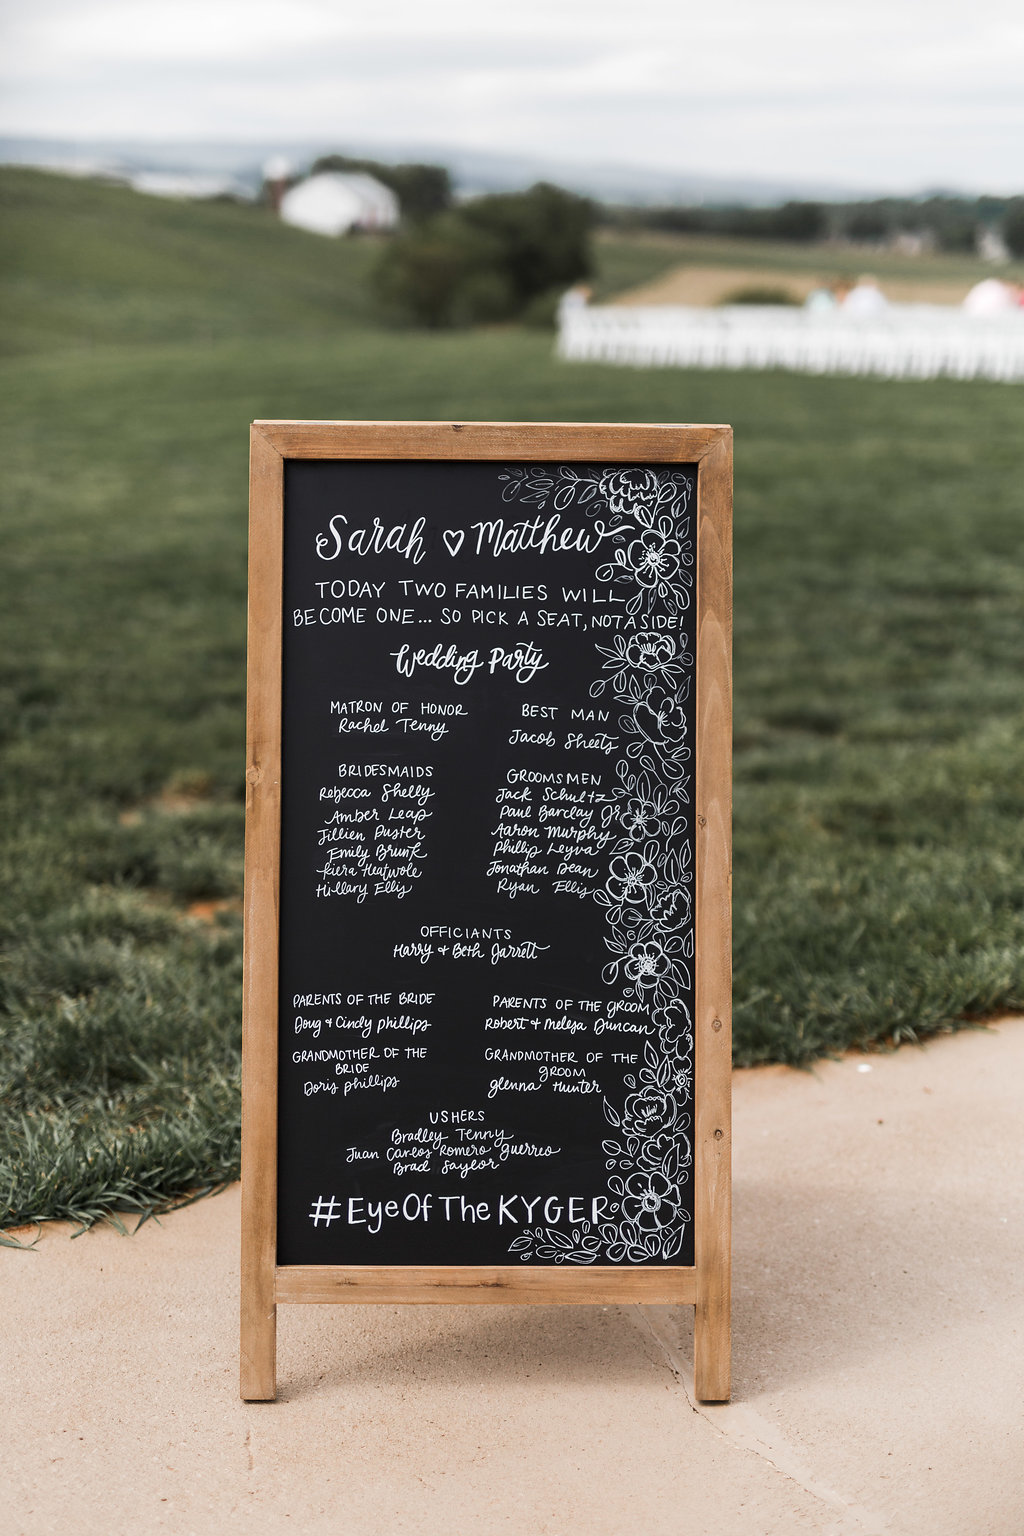 Sarah ♡ Matthew
TODAY TWO FAMILIES WILL
BECOME ONE... SO PICK A SEAT, NOT A SIDE!
Wedding Party
MATRON OF HONOR
Rachel Tenny
BEST MAN
Jacob Sheets
BRIDESMAIDS
Rebecca Shelly
Amber Leap
Jillien Puster
Emily Brunk
Kiera Heatwole
Hillary Ellis
GROOMSMEN
Jack Schultz
Paul Barclay Jr.
Aaron Murphy
Phillip Leyva
Jonathan Dean
Ryan Ellis
OFFICIANTS
Harry + Beth Jarrett
PARENTS OF THE BRIDE
Doug + Cindy phillips
PARENTS OF THE GROOM
Robert + Melesa Duncan
GRANDMOTHER OF THE
BRIDE
Doris phillips
GRANDMOTHER OF THE
GROOM
Glenna Hunter
USHERS
Bradley Tenny
Juan Carlos Romero Guerreo
Brad Saylor
#EyeOfTheKYGER